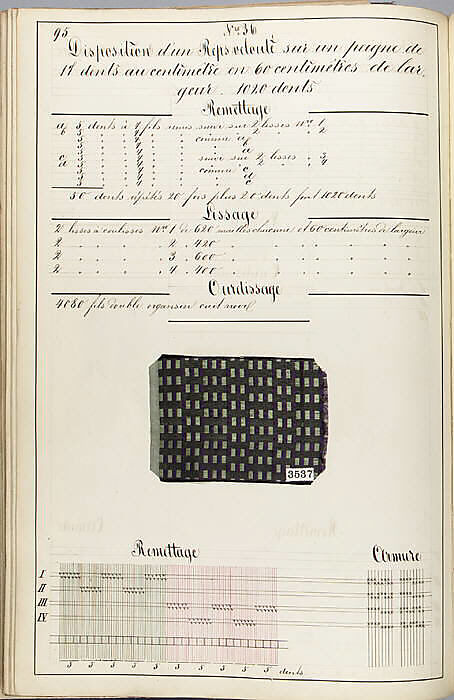 95
Nº 36
Disposition d'un Reps velouté sur un peigne de
17 dents au centimètre en 60 centimètres de lar,
geur. 1020 dents
Remettage
a 5 dents à 4 fils
suivi sur 2 lisses nos 1
b 5 4 2 2
5 4 comme a
5 4 b
5 4 a
c 5 4 suivi sur 2 lisses 3
d 5 4 2 4
5 4 comme c
5 4 d
5 4 c
50 dents répétés 20 fois plus 20 dents font 1020 dents
Lissage
2 lisses à coulisses nos 1 de 620 mailles chacune et 60 centimètres de largeur
2 2 420
2 3 600
2 4 400
Ourdissage
4080 fils double organsin cuit noir
3537
Remettage
Armure
I
II
III
IV
5 5 5 5 5 5 5 5 5 5 dents